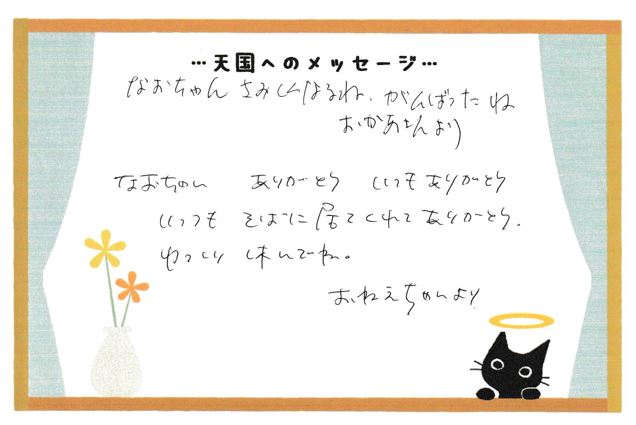 …天国へのメッセージ…
なおちゃん さみしくなるね、がんばったね
おかあさんより
なおちゃん ありがとう いつもありがとう
いつも そばに居てくれてありがとう。
ゆっくり 休んでね。
おねえちゃんより